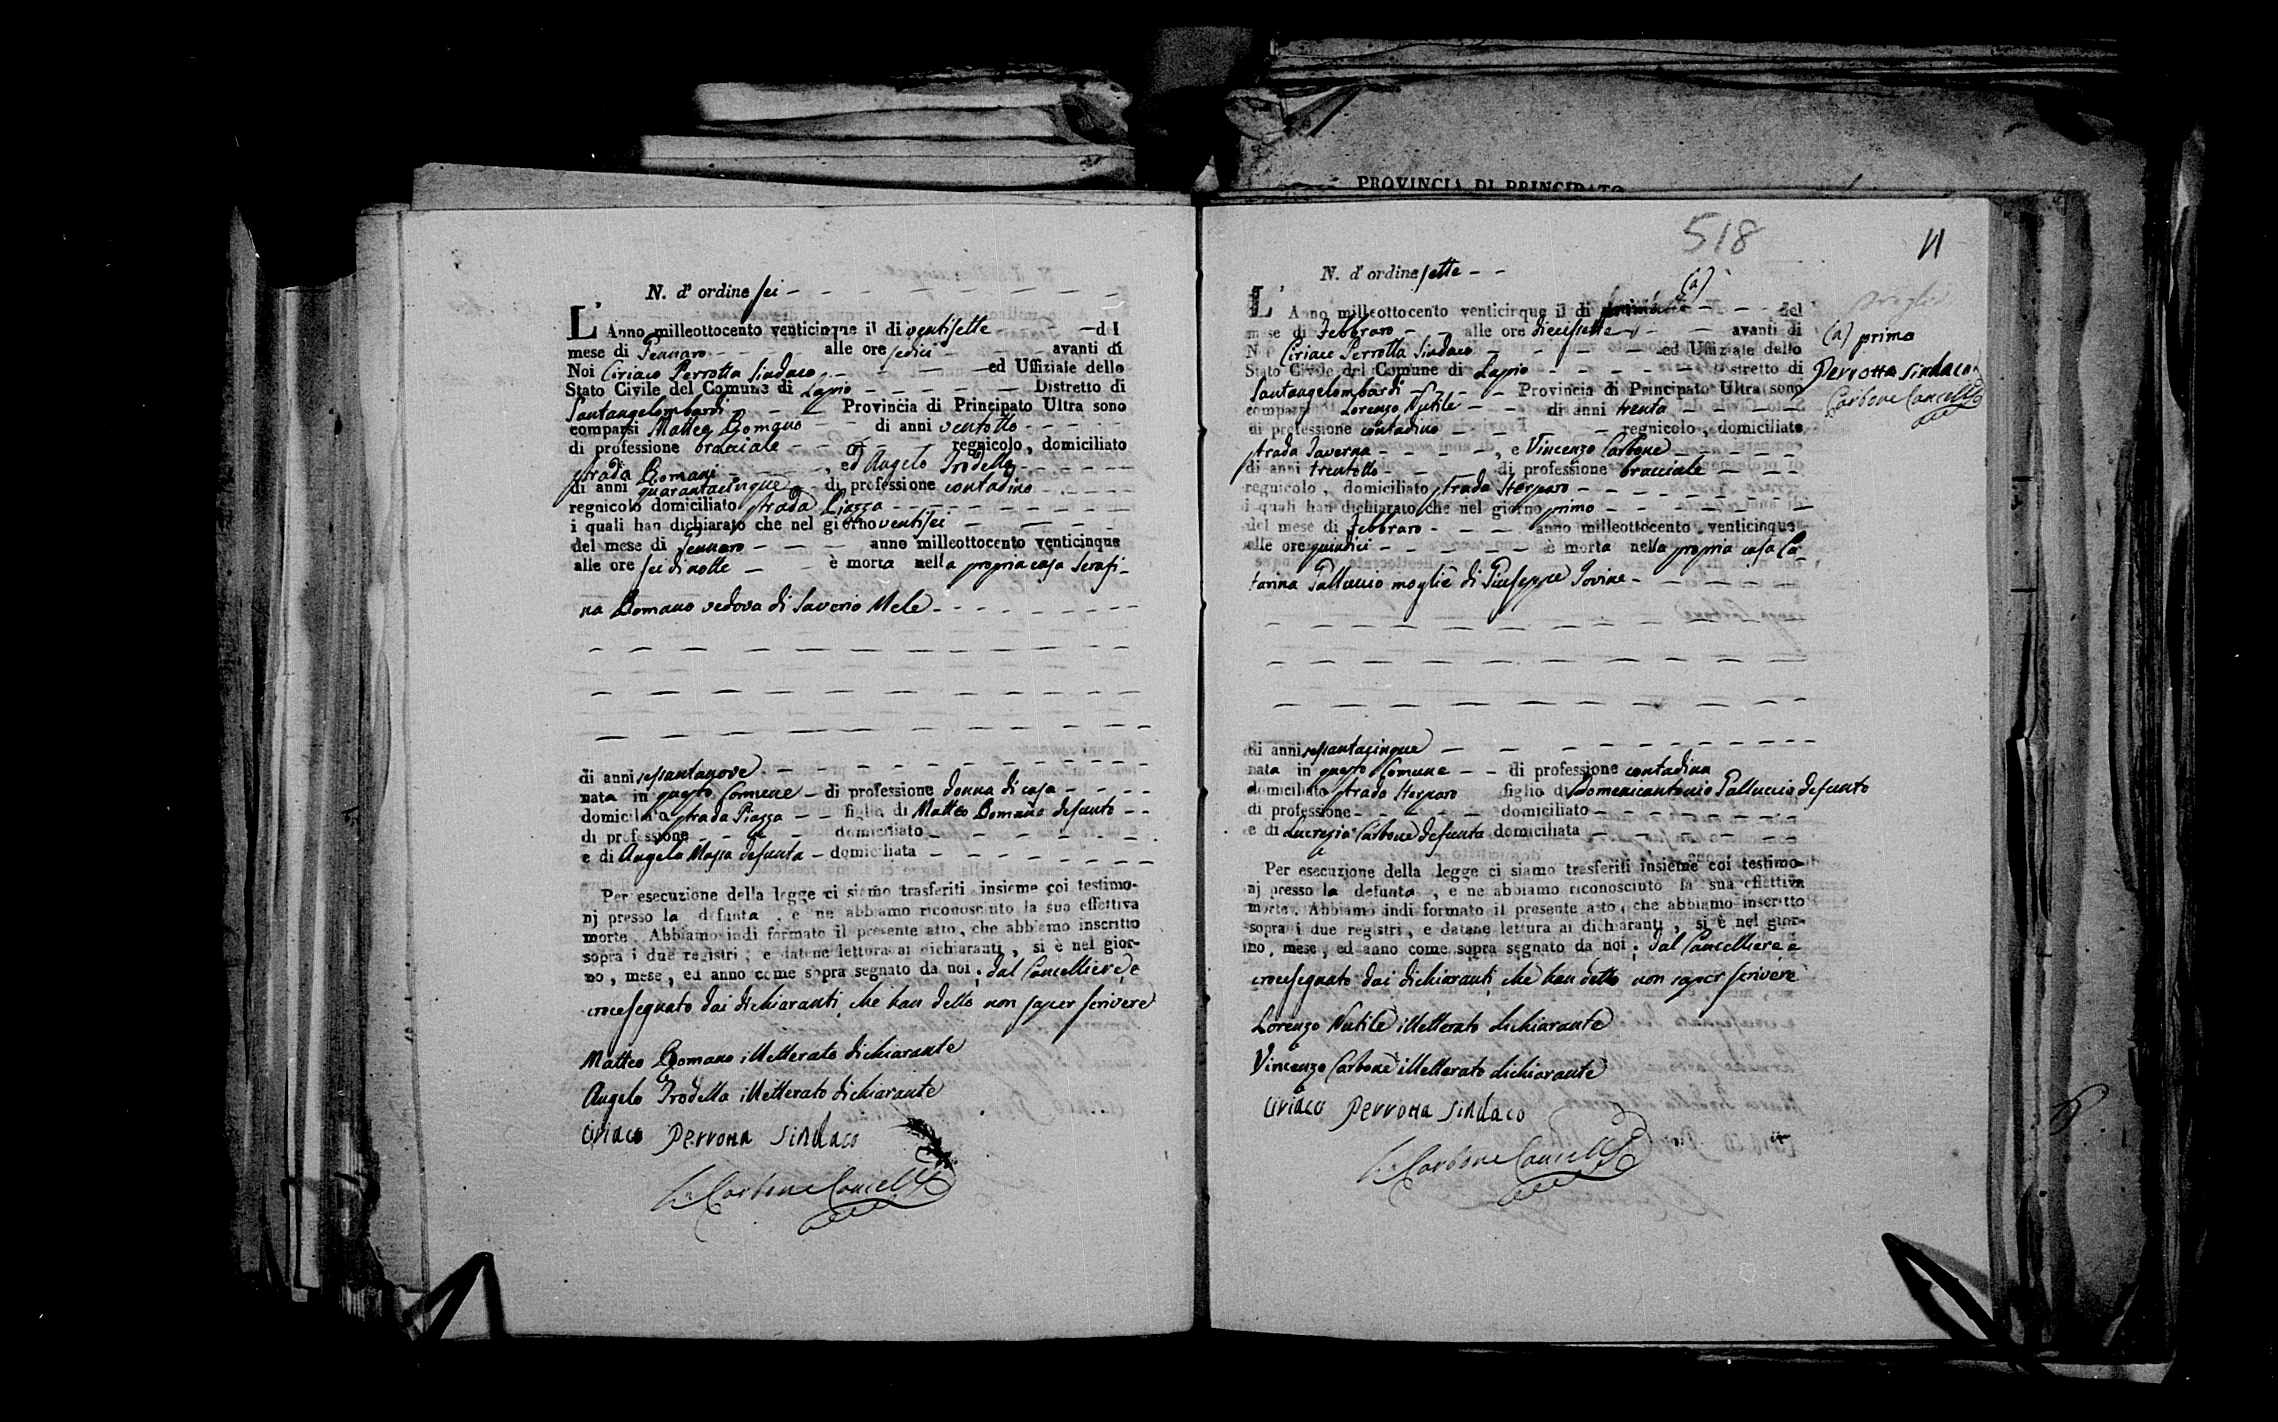 PROVINCIA DI PRINCIPATO
N. d' ordine sei
L' Anno milleottocento venticinque il dì ventisette del
mese di Gennaro alle ore sedici avanti di
Noi Ciriaco Perrotta Sindaco ed Uffiziale dello
Stato Civile del Comune di Lapio Distretto di
Santangelombardi Provincia di Principato Ultra sono
comparsi Matteo Romano di anni ventotto
di professione bracciale regnicolo, domiciliato
strada Romani, ed Angelo Trodella
di anni quarantacinque di professione contadino
regnicolo domiciliato strada Piazza
i quali han dichiarato che nel giorno ventisei
del mese di Gennaro anno milleottocento venticinque
alle ore sei di notte è morta nella propria casa Serafi-
na Romano vedova di Saverio Mele
di anni sessantanove
nata in questo Comune di professione donna di casa
domiciliata strada Piazza figlia di Matteo Romano defunto
di professione domiciliato
e di Angela Massa defunta domiciliata
Per esecuzione della legge ci siamo trasferiti insieme coi testimo-
nj presso la defunta, e ne abbiamo riconosciuto la sua effettiva
morte. Abbiamo indi formato il presente atto, che abbiamo inscritto
sopra i due registri, e datene lettura ai dichiaranti, si è nel gior-
no, mese, ed anno come sopra segnato da noi, dal Cancelliere, e
crocesegnato dai dichiaranti che han detto non saper scrivere
Matteo Romano illetterato dichiarante
Angelo Trodella illetterato dichiarante
Ciriaco Perrotta Sindaco
Carbone Cancell
518
11
N. d' ordine sette
(a)
L' Anno milleottocento venticinque il dì del
mese di Febbraro alle ore diecissette avanti di
Noi Ciriaco Perrotta Sindaco ed Uffiziale dello
Stato Civile del Comune di Lapio Distretto di
Santangelombardi Provincia di Principato Ultra sono
comparsi Lorenzo Nutile di anni trenta
di professione contadino regnicolo, domiciliato
strada Taverna, e Vincenzo Carbone
di anni trentotto di professione bracciale
regnicolo, domiciliato strada Sterparo
i quali han dichiarato che nel giorno primo
del mese di Febbraro anno milleottocento venticinque
alle ore quindici è morta nella propria casa Ca-
tarina Galluccio moglie di Giuseppe Iovine
di anni sessantacinque
nata in questo Comune di professione contadina
domiciliata strada Sterparo figlia di Domenicantonio Galluccio defunto
di professione domiciliato
e di Lucrezia Carbone defunta domiciliata
Per esecuzione della legge ci siamo trasferiti insieme coi testimo-
nj presso la defunta, e ne abbiamo riconosciuto la sua effettiva
morte. Abbiamo indi formato il presente atto, che abbiamo inscritto
sopra i due registri, e datane lettura ai dichiaranti, si è nel gior-
no, mese, ed anno come sopra segnato da noi, dal Cancelliere e
crocesegnato dai dichiaranti che han detto non saper scrivere
Lorenzo Nutile illetterato dichiarante
Vincenzo Carbone illetterato dichiarante
Ciriaco Perrotta Sindaco
Carbone Cancell
(a) primo
Perrotta Sindaco
Carbone Cancell